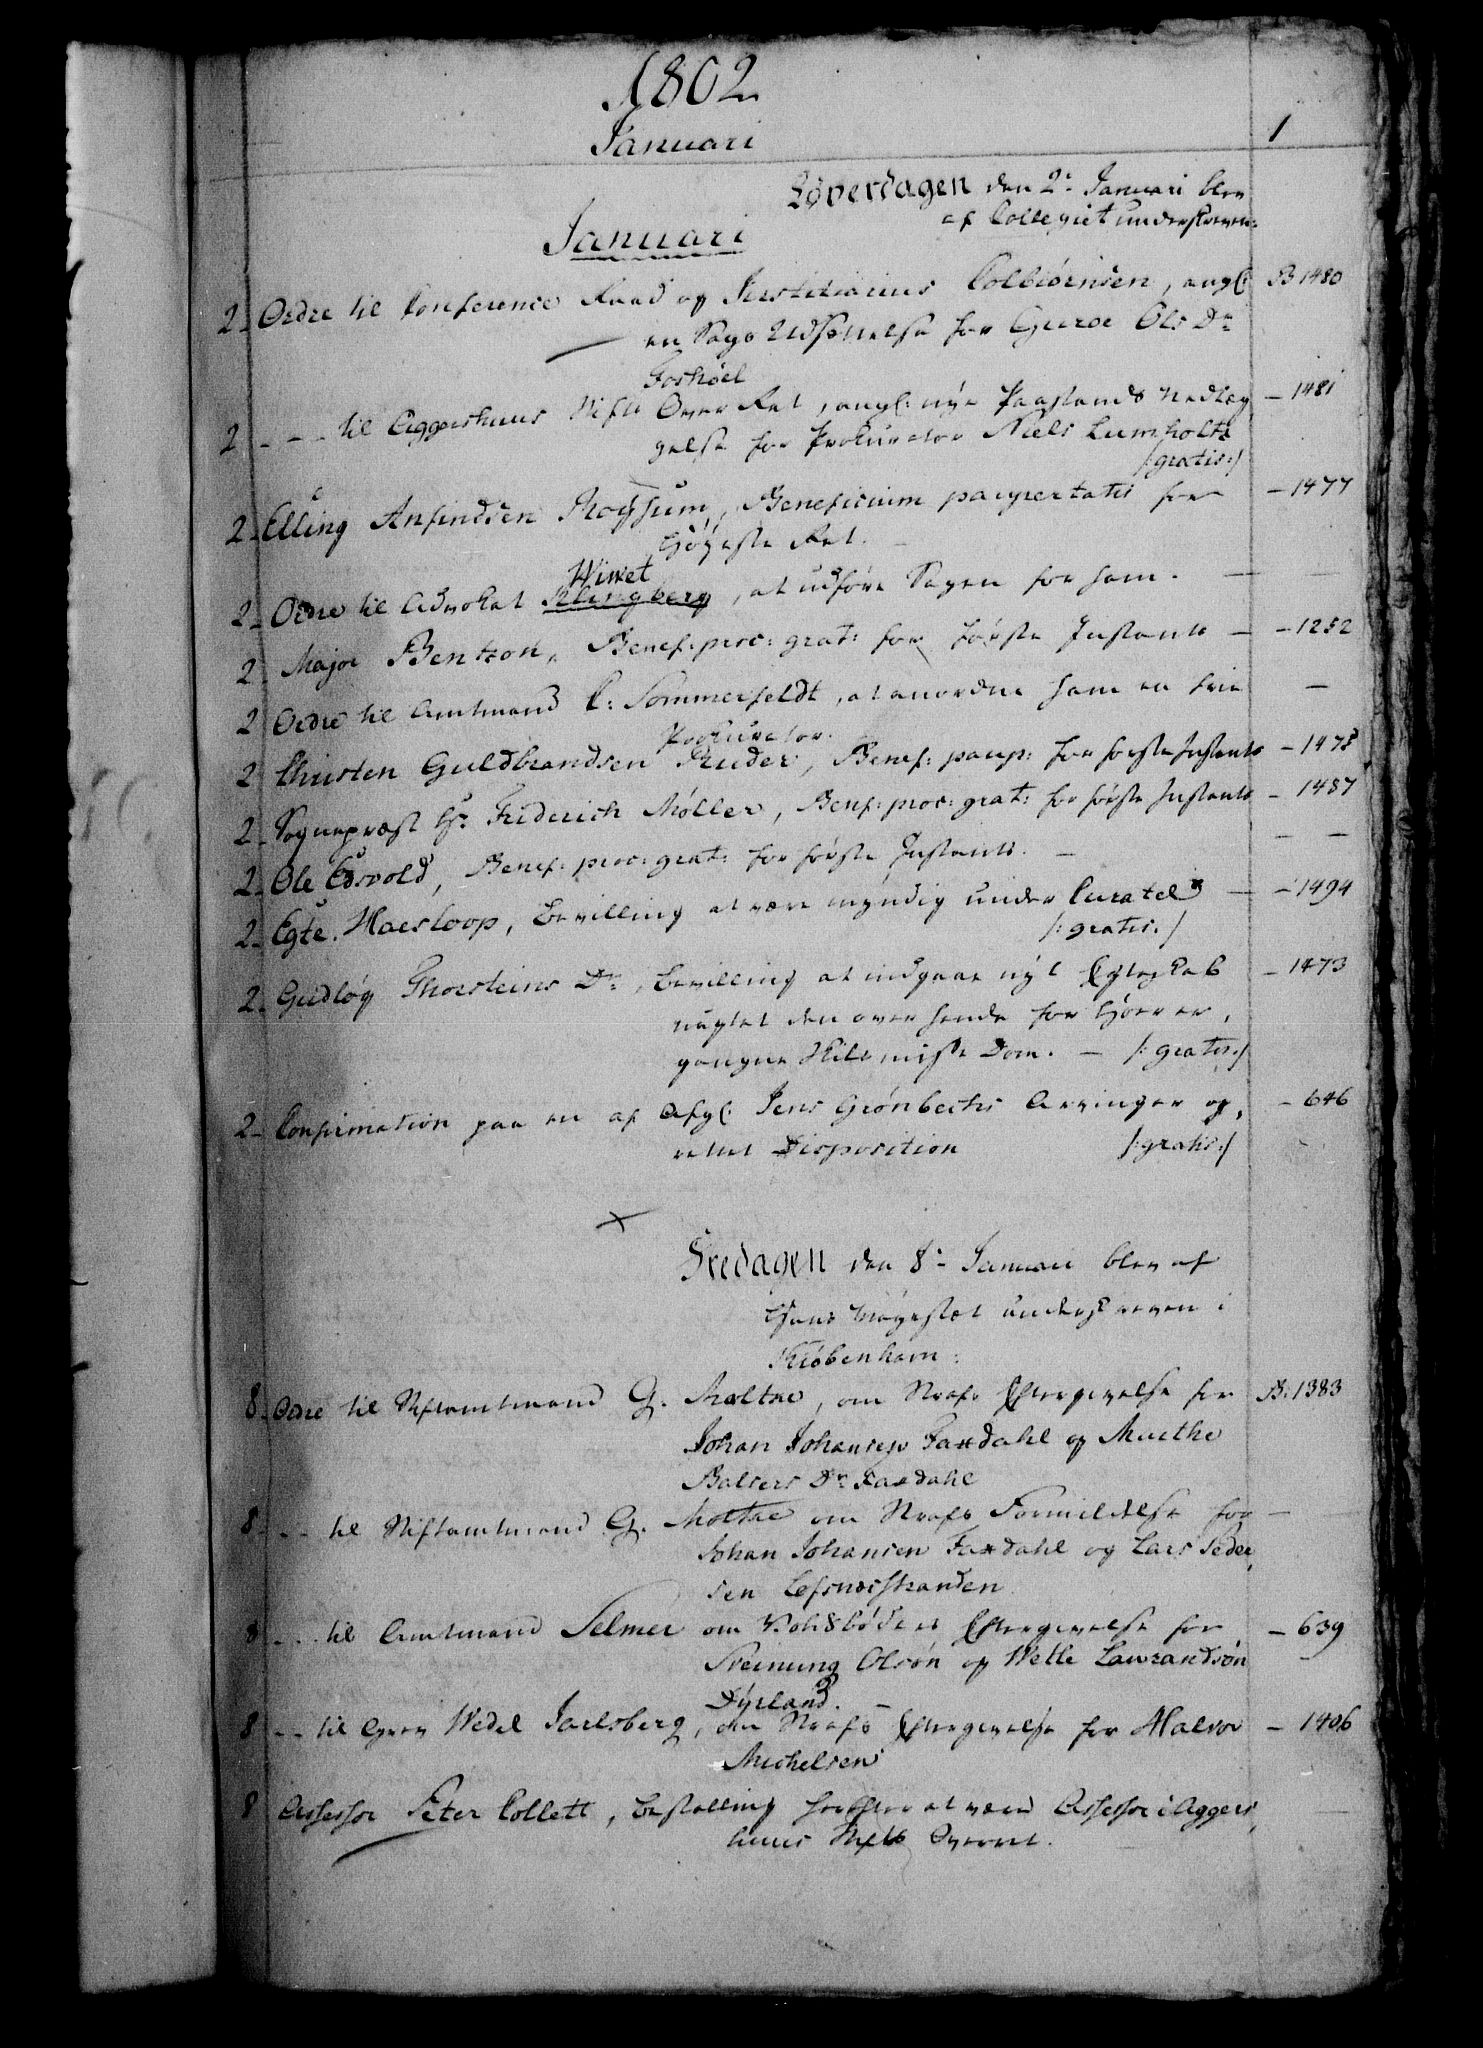 1802
Januari
1
Löverdagen den 2: Januari blev
af Collegiet underskreven:
Januari
2 - Ordre til Conference Raad og Justitiarius Colbiörnsen, angl: B. 1480
en Sags Udsættelse for Guroe Ols Dr
Foshöel
2 - - - til Aggershuus Stifts Over Ret, angl: nye Paastands Nedlæg - 1481
gelse for Prokurator Niels Lumholtz
/:gratis:/
2 - Elling Anfindsen, Beneficium paupertatis for - 1477
Höyeste Ret. -
Wivet
2 - Ordre til Advokat Klingberg, at udföre Sagen for ham. -
2 - Major Bentzon, Benef: proc: grat: for förste Instants - - 1252
2 Ordre til Amtmand C: Sommerfeldt, at anordne ham en frie -
Prokurator.
2 Christen Guldbrandsen Ruder, Benef: paup: for förste Instants - 1475
2 - Sognepræst Hr. Friderich Möller, Benef: proc: grat: for förste Instants - 1487
2 - Ole Edsvold, Benef: proc: grat: for förste Instants. - - -
2 - Egte. Haesloop, Bevilling at være myndig under Curatel - - 1494
/:gratis:/
2 - Gudlög Thorsteins Dr, Bevilling at indgaae nyt Egteskab - 1473
uagtet den over hende for Hoer er,
gangne Skilsmisse Dom. - /:gratis:/
2 - Confirmation paa en af Afgl: Jens Grönbechs Arvinger op, - 646
rettet Disposition /:gratis:/
Fredagen den 8: Januari blev af
Hans Mayestæt underskreven i
Kiöbenhavn:
8 - Ordre til Stiftamtmand G. Moltke, om Strafs Eftergivelse for B. 1383
Johan Johansen Faxdahl og Marthe
Balsers Dr Faxdahl
8 - - - til Stiftamtmand G. Moltke om Strafs Formildelse for -
Johan Johansen Faxdahl og Lars Peder,
sen Lefsnæsstranden
8 - - - til Amtmand Selmer om Voldsböders Eftergivelse for - 639
Sveinung Olsön og Wetle Lavrandsön
Dyrland. -
8 - - til Grev Wedel Jarlsberg, om Strafs Eftergivelse for Halvor - 1406
Michelsen
8 Assessor Peter Collett, Bestalling herefter at være Assessor i Aggers,
huus Stifts Overret.